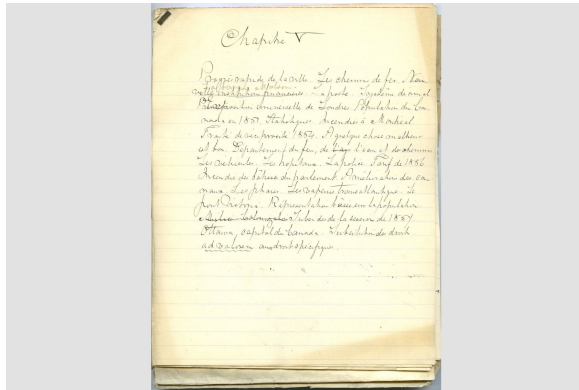 Chapitre V
Progrès rapide de la ville. Le chemin de fer. Nou
velles institutions financières. La poste. Système décimal
Exposition universelle de Londres Population du Ca-
nada en 1851. Statistiques. Incendies à Montréal
Traité de réciprocité 1854. A quelque chose malheur
est bon. Département du feu, de l'eau et des chemins
Les véhicules. Les hôpitaux. La police. Tarif de 1856
Incendie des bâtisses du parlement. Amélioration des ca-
naux. Les phares. Les vapeurs transatlantiques. Le
pont Victoria. Représentation basée sur la population
de la session de 1857
Ottawa, capitale du Canada. Substitution des droits
ad valorem aux droits spécifiques.